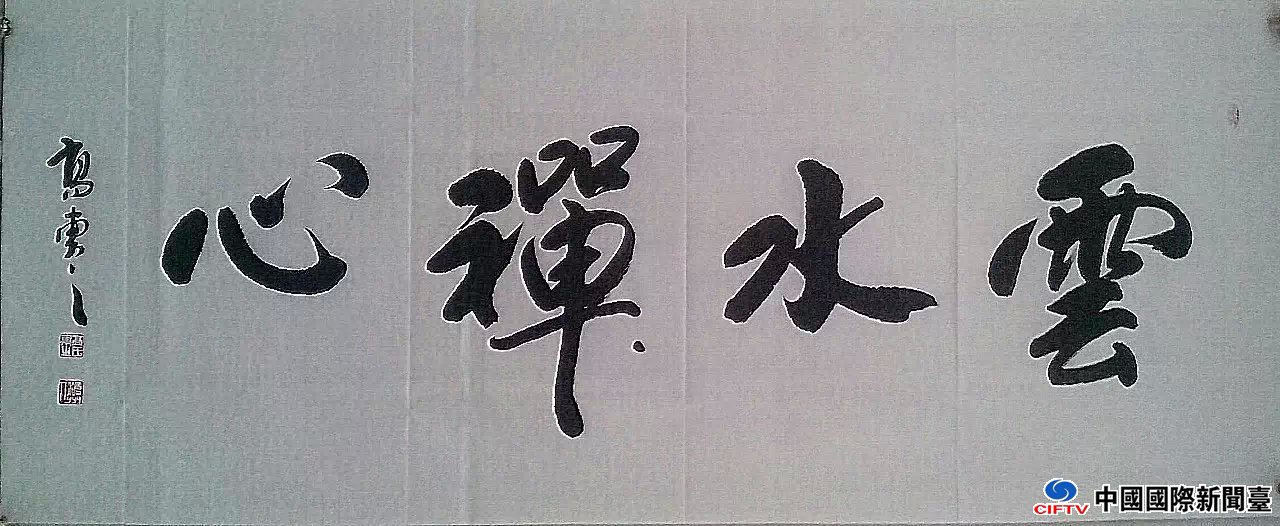 雲水禪心
中國國際新聞臺
CIFTV